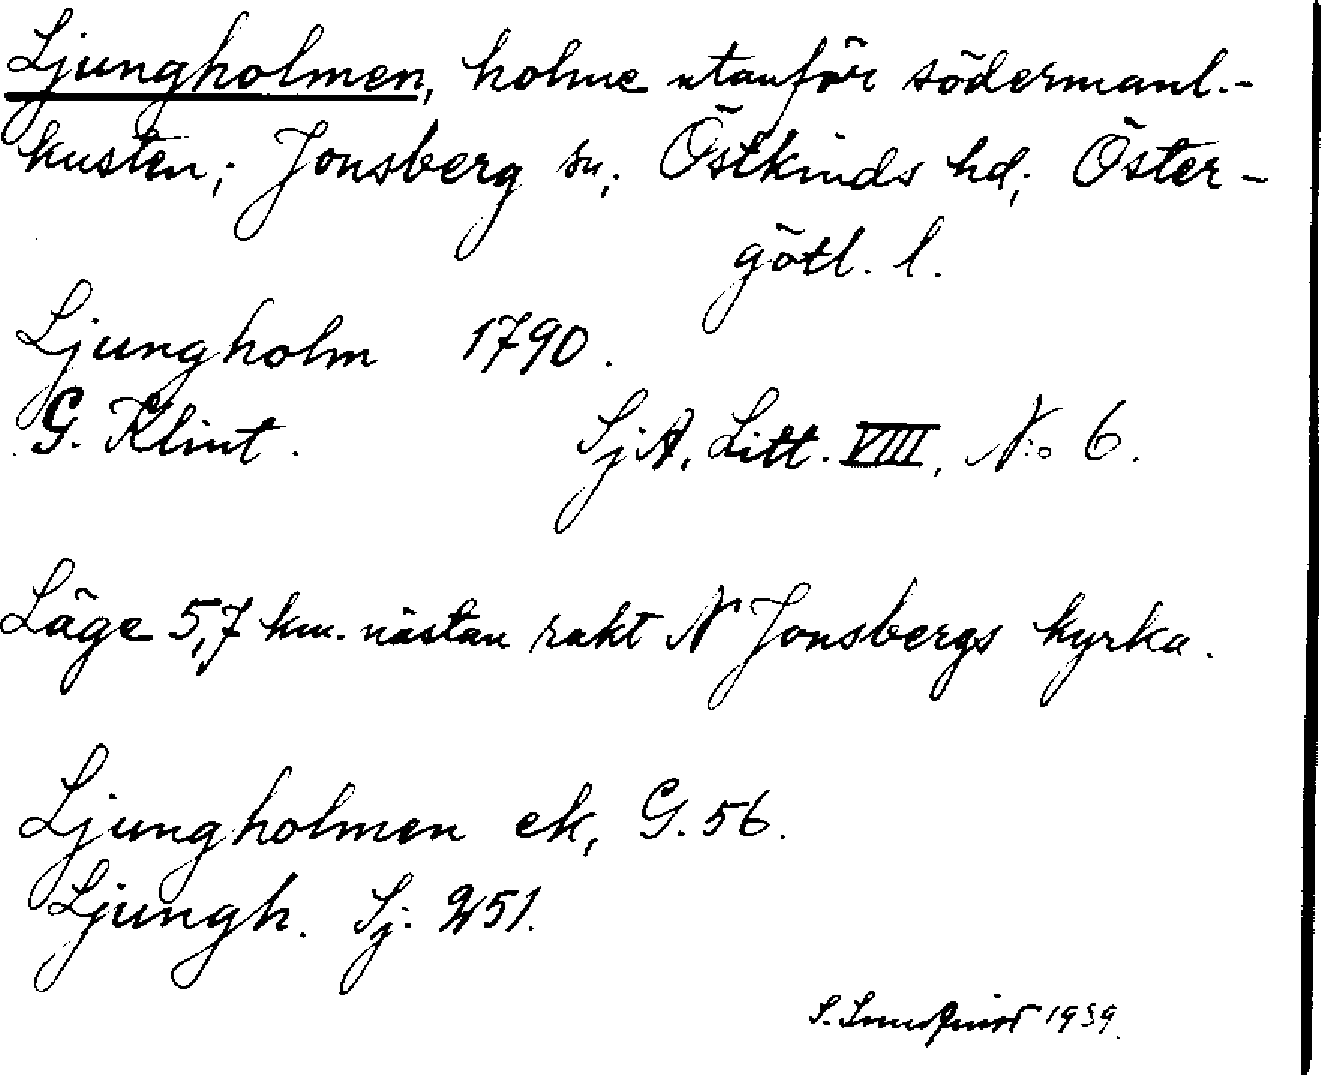 Ljungholmen, holme utanför södermanl.-
kusten; Jonsberg sn; Östkinds hd; Öster-
götl. l.
Ljungholm 1790.
G. Klint. SjA, Litt. VIIII, N:o 6.
Läge 5,7 km. nästan rakt N Jonsbergs kyrka.
Ljungholmen ek, G. 56.
Ljungh. Sj. 251.
S. 1939.